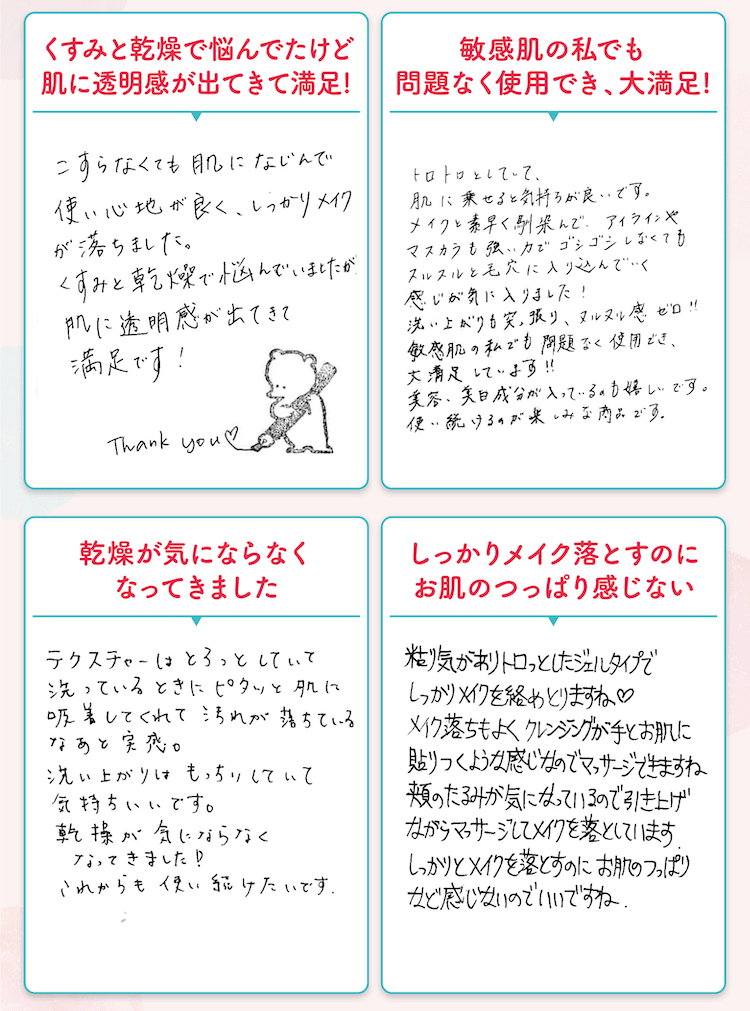 くすみと乾燥で悩んでたけど
肌に透明感が出てきて満足!
こすらなくても肌になじんで
使い心地が良く、しっかりメイク
が落ちました。
くすみと乾燥で悩んでいましたが
肌に透明感が出てきて
満足です!
Thank you♡
敏感肌の私でも
問題なく使用でき、大満足!
トロトロとしていて、
肌に乗せると気持ちが良いです。
メイクと素早く馴染んで、アイラインや
マスカラも強い力でゴシゴシしなくても
スルスルと毛穴に入り込んでいく
感じが気に入りました!
洗い上がりも突っ張り、ヌルヌル感ゼロ!!
敏感肌の私でも問題なく使用でき、
大満足しています!!
美容、美白成分が入っているのも嬉しいです。
使い続けるのが楽しみな商品です。
乾燥が気にならなく
なってきました
テクスチャーはとろっとしていて
洗っているときにピタッと肌に
吸着してくれて汚れが落ちている
なあと実感。
洗い上がりはもっちりしていて
気持ちいいです。
乾操が気にならなく
なってきました!
これからも使い続けたいです.
しっかりメイク落とすのに
お肌のつっぱり感じない
粘り気がありトロっとしたジェルタイプで
しっかりメイクを絡めとりますね♡
メイク落ちもよくクレンジングが手とお肌に
貼りつくような感じなのでマッサージできますね
頬のたるみが気になっているので引き上げ
ながらマッサージしてメイクを落としています.
しっかりとメイクを落とすのにお肌のつっぱり
など感じないのでいいですね.